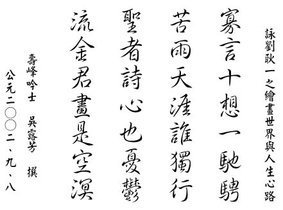 詠劉耿一之繪畫世界與人生心路
寡言十想一馳騁
苦雨天涯誰獨行
聖者詩心也憂鬱
流金君畫是空溟
壽峰吟士 吳露芳 撰
公元二〇〇二、九、八